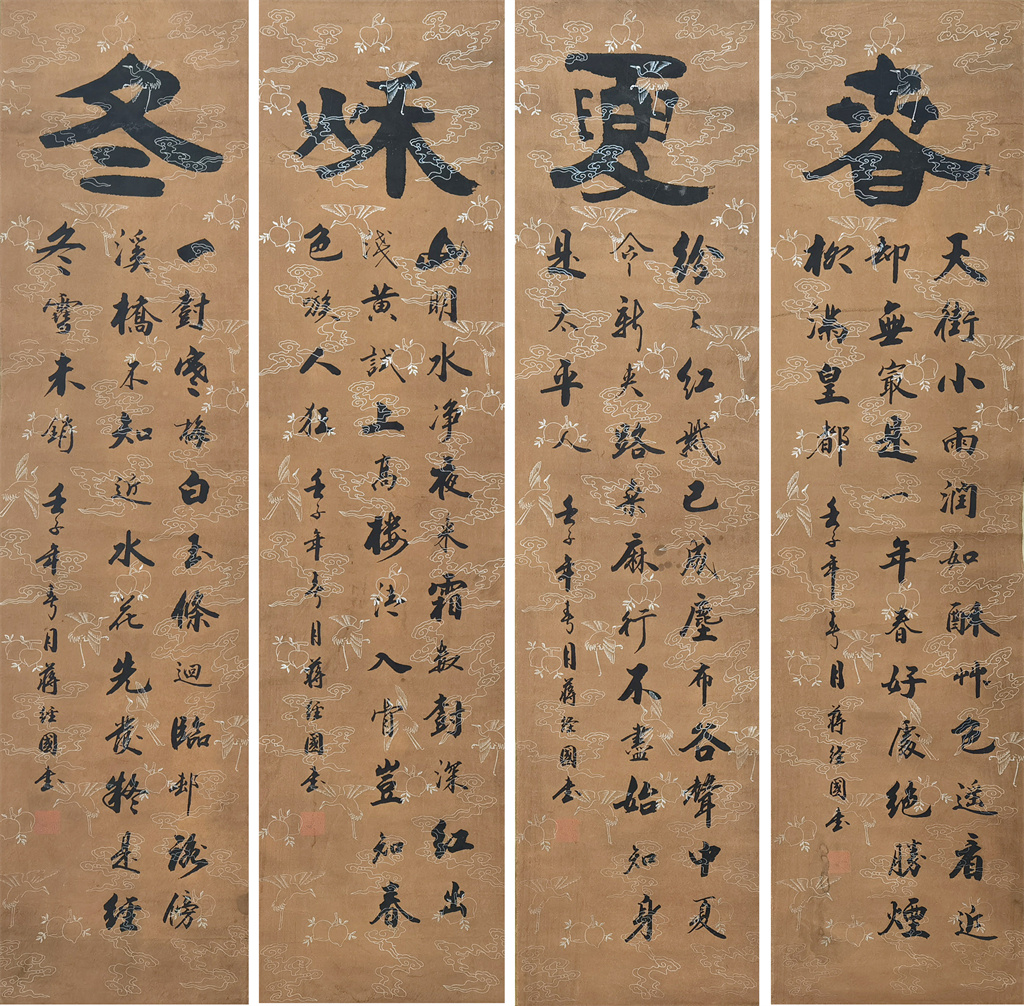 春
天街小雨潤如酥艸色遥看近
却無冣是一年春好處絕勝煙
柳滿皇都 壬子年春月蔣經國書
夏
紛〻紅紫已成塵布谷聲中夏
令新夾路桑麻行不盡始知身
是太平人 壬子年春月蔣經國書
秌
山明水净夜来霜數對深紅出
淺黄試上高樓清入骨豈知春
色嗾人狂 壬子年春月蔣經國書
冬
一對寒梅白玉條迴臨邨路傍
溪橋不知近水花先發疑是經
冬雪未銷 壬子年春月蔣經國書